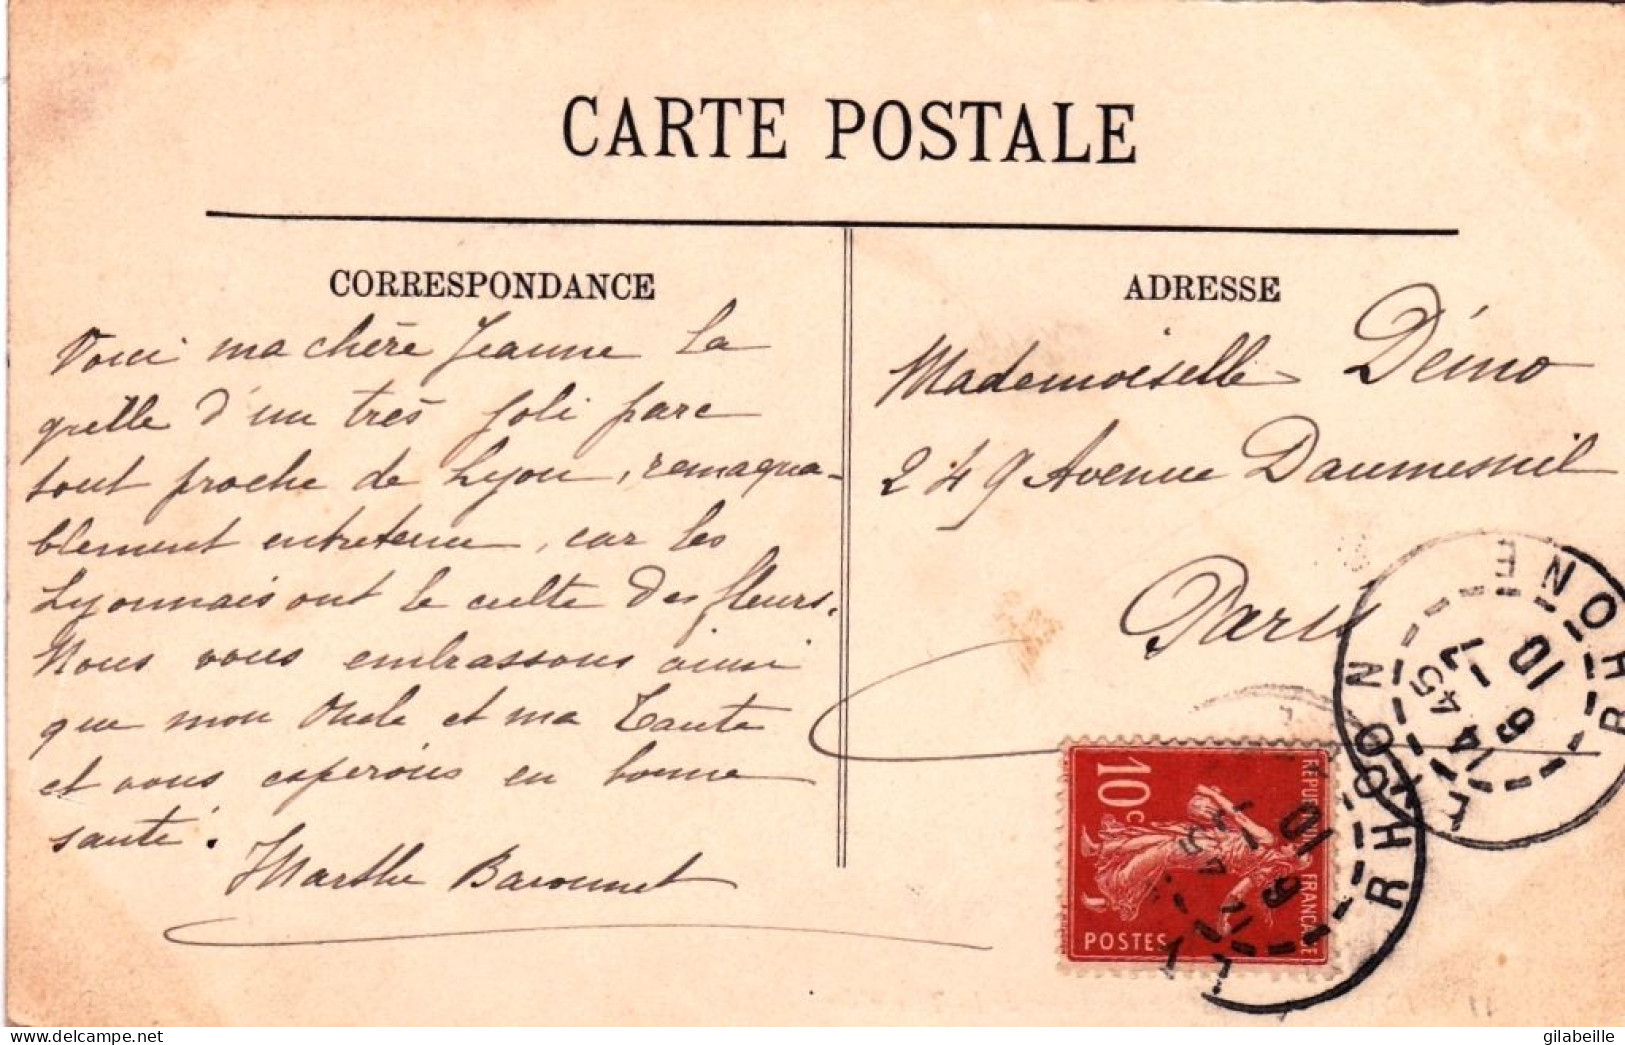 CARTE POSTALE
CORRESPONDANCE
Voici ma chère Jeanne la
grille d'un très joli parc
tout proche de Lyon, remaqua-
blement entretenu, car les
Lyonnais ont le culte des fleurs.
Nous vous embrassons ainsi
que mon Oncle et ma Tante
et vous espérons en bonne
santé.
Marthe Baronnet
ADRESSE
Mademoiselle Démo
249 Avenue Daumesnil
Paris
LYON RHONE
14 45
1 - 7
9 10
10c
REPUBLIQUE FRANCAISE
POSTES
LYON RHONE
9 10
www.delcampe.net
gilabeille